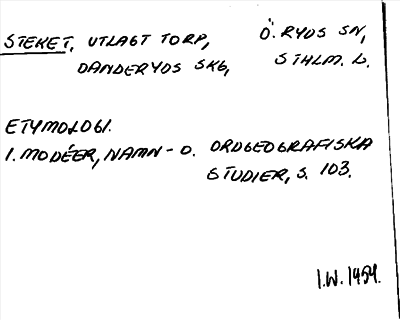 STEKET, UTLAGT TORP, Ö. RYDS SN,
DANDERYDS SKG, STHLM. L.
ETYMOLOGI.
I. MODÉER, NAMN- O. ORDGEOGRAFISKA
STUDIER, S. 103.
I.W. 1959.